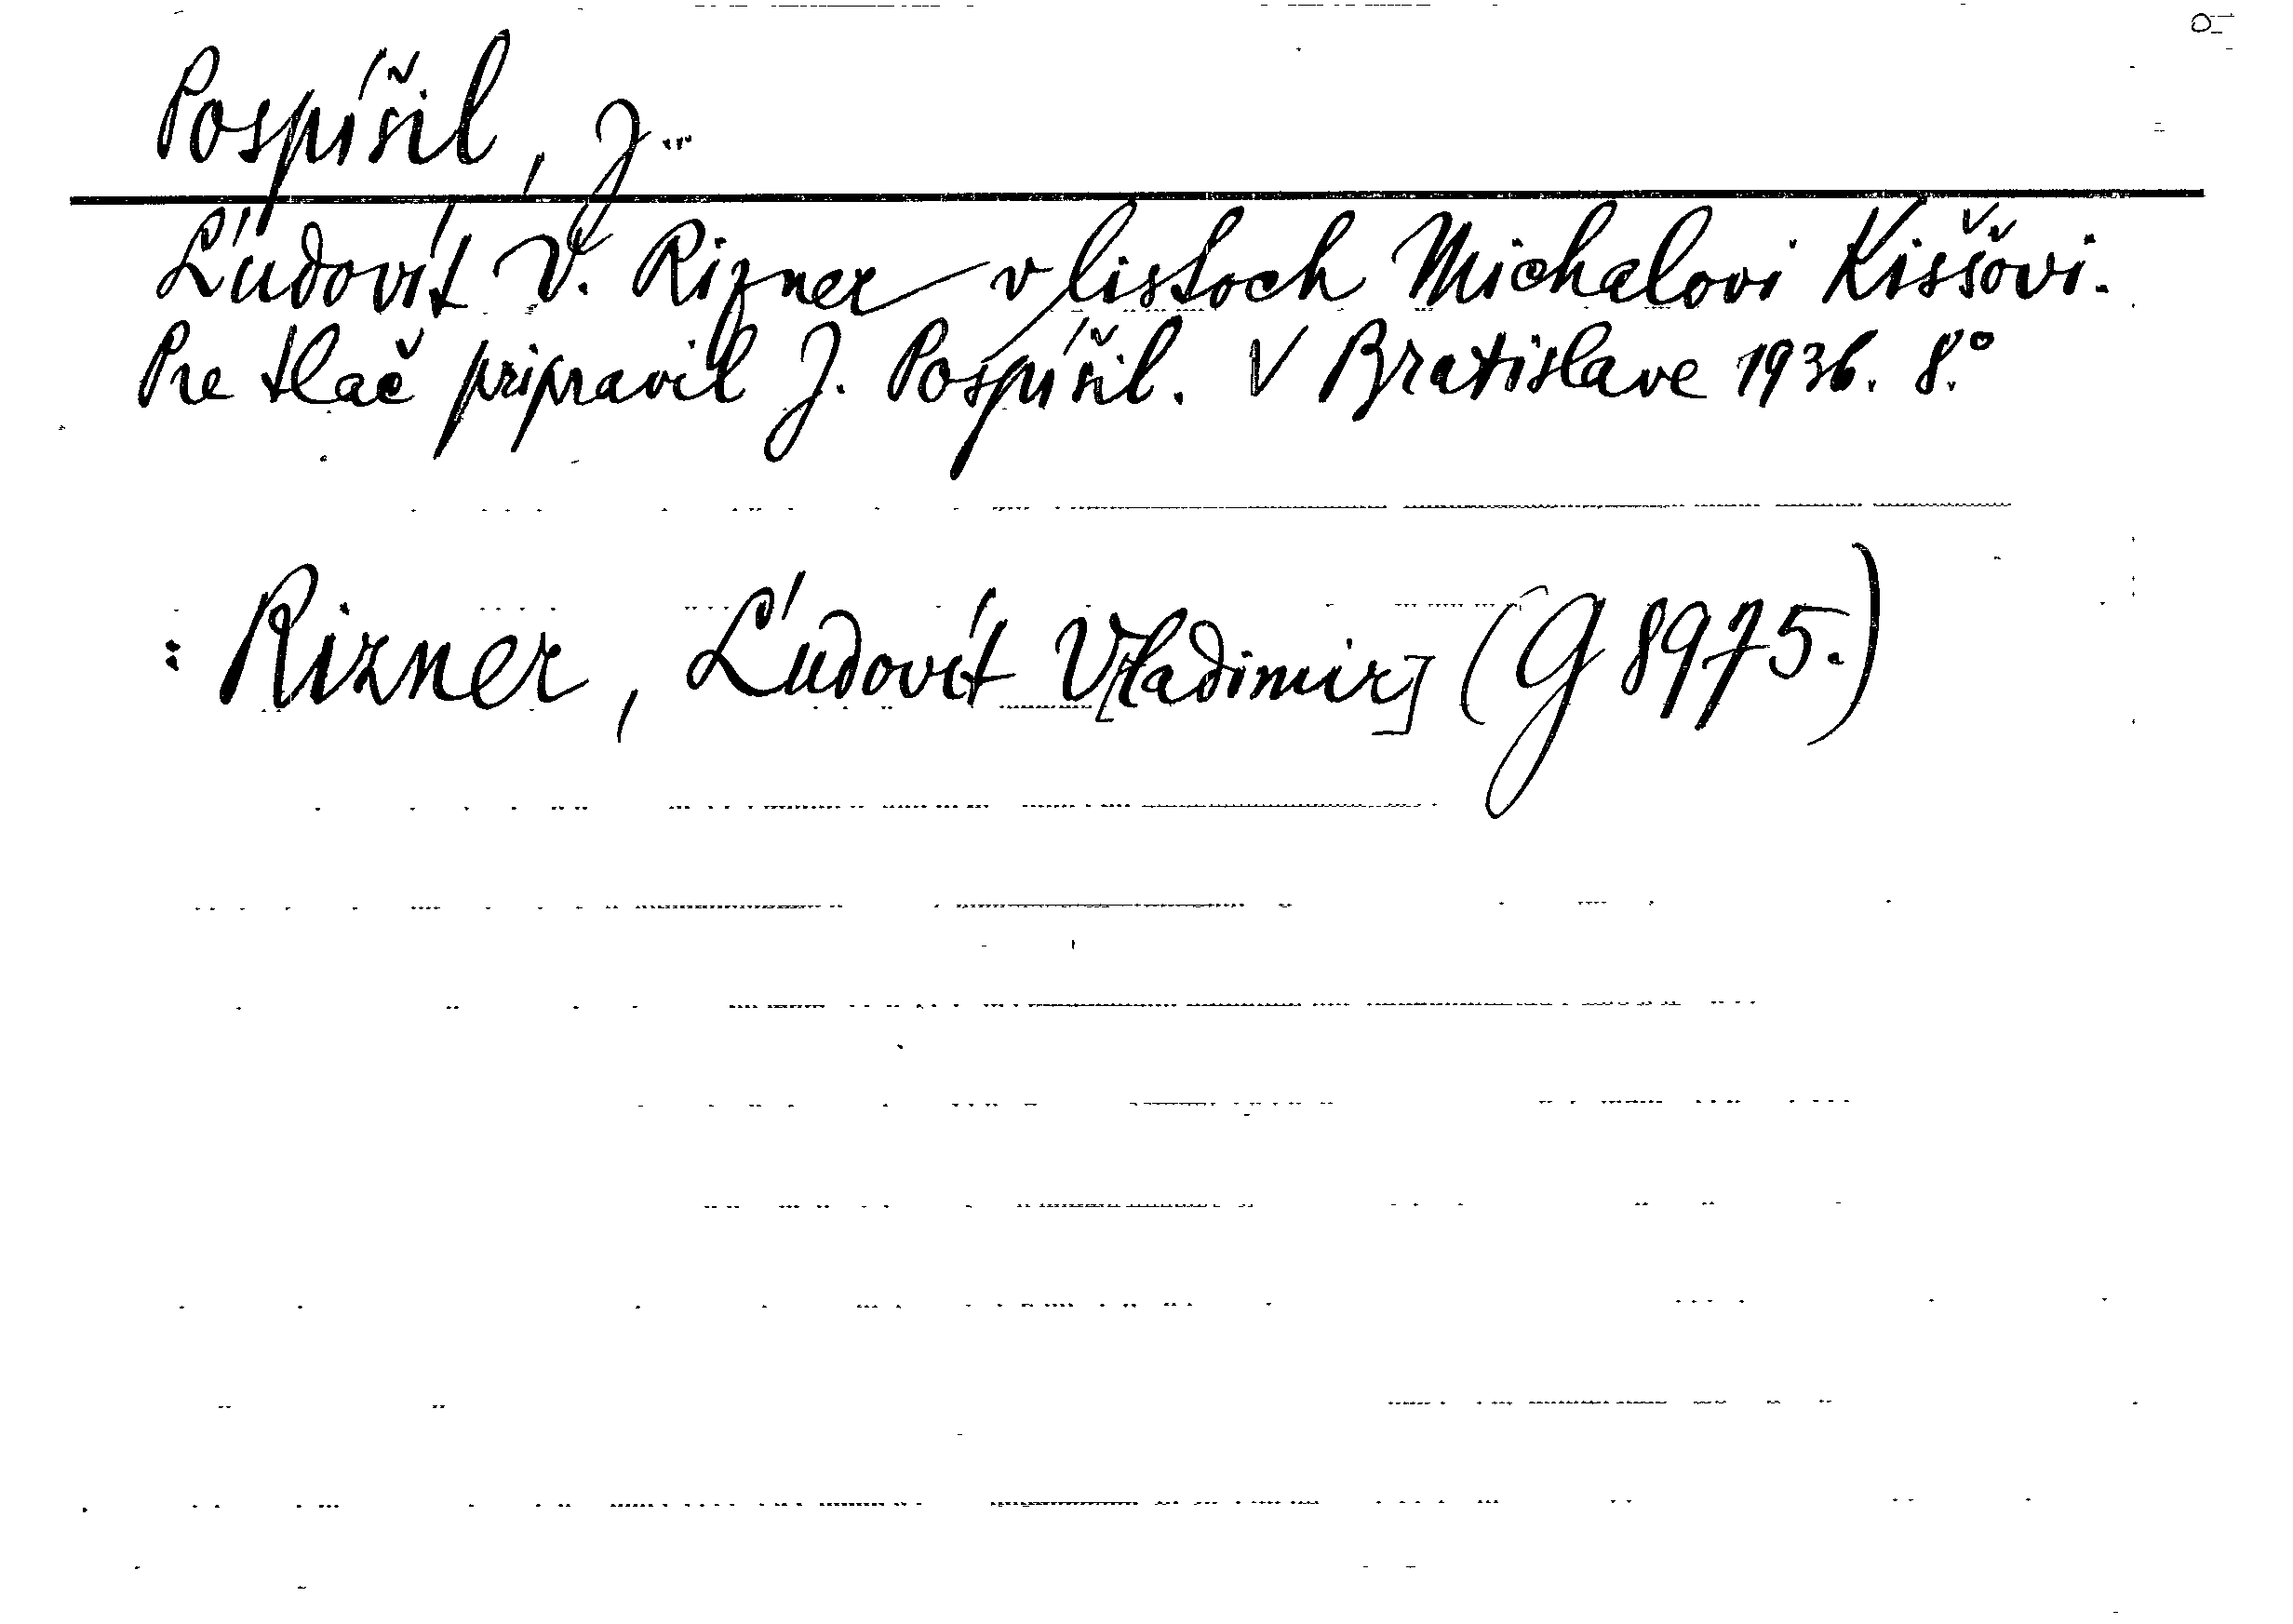 Pospíšil, J...
Ľudovít V. Rizner v listoch Michalovi Kiššovi.
Pre tlač pripravil J. Pospíšil. V Bratislave 1936. 8.°
: Rizner, Ľudovít V[ladimir] (G 8975.)